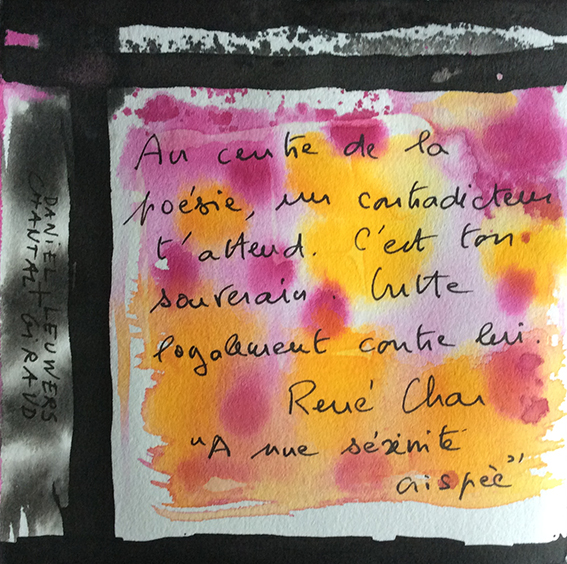 Au centre de la
poésie, un contradicteur
t'attend. C'est ton
souverain. Lutte
loyalement contre lui.
René Char
"A une sérénité
crispée"
DANIEL LEUWERS
CHANTAL GIRAUD